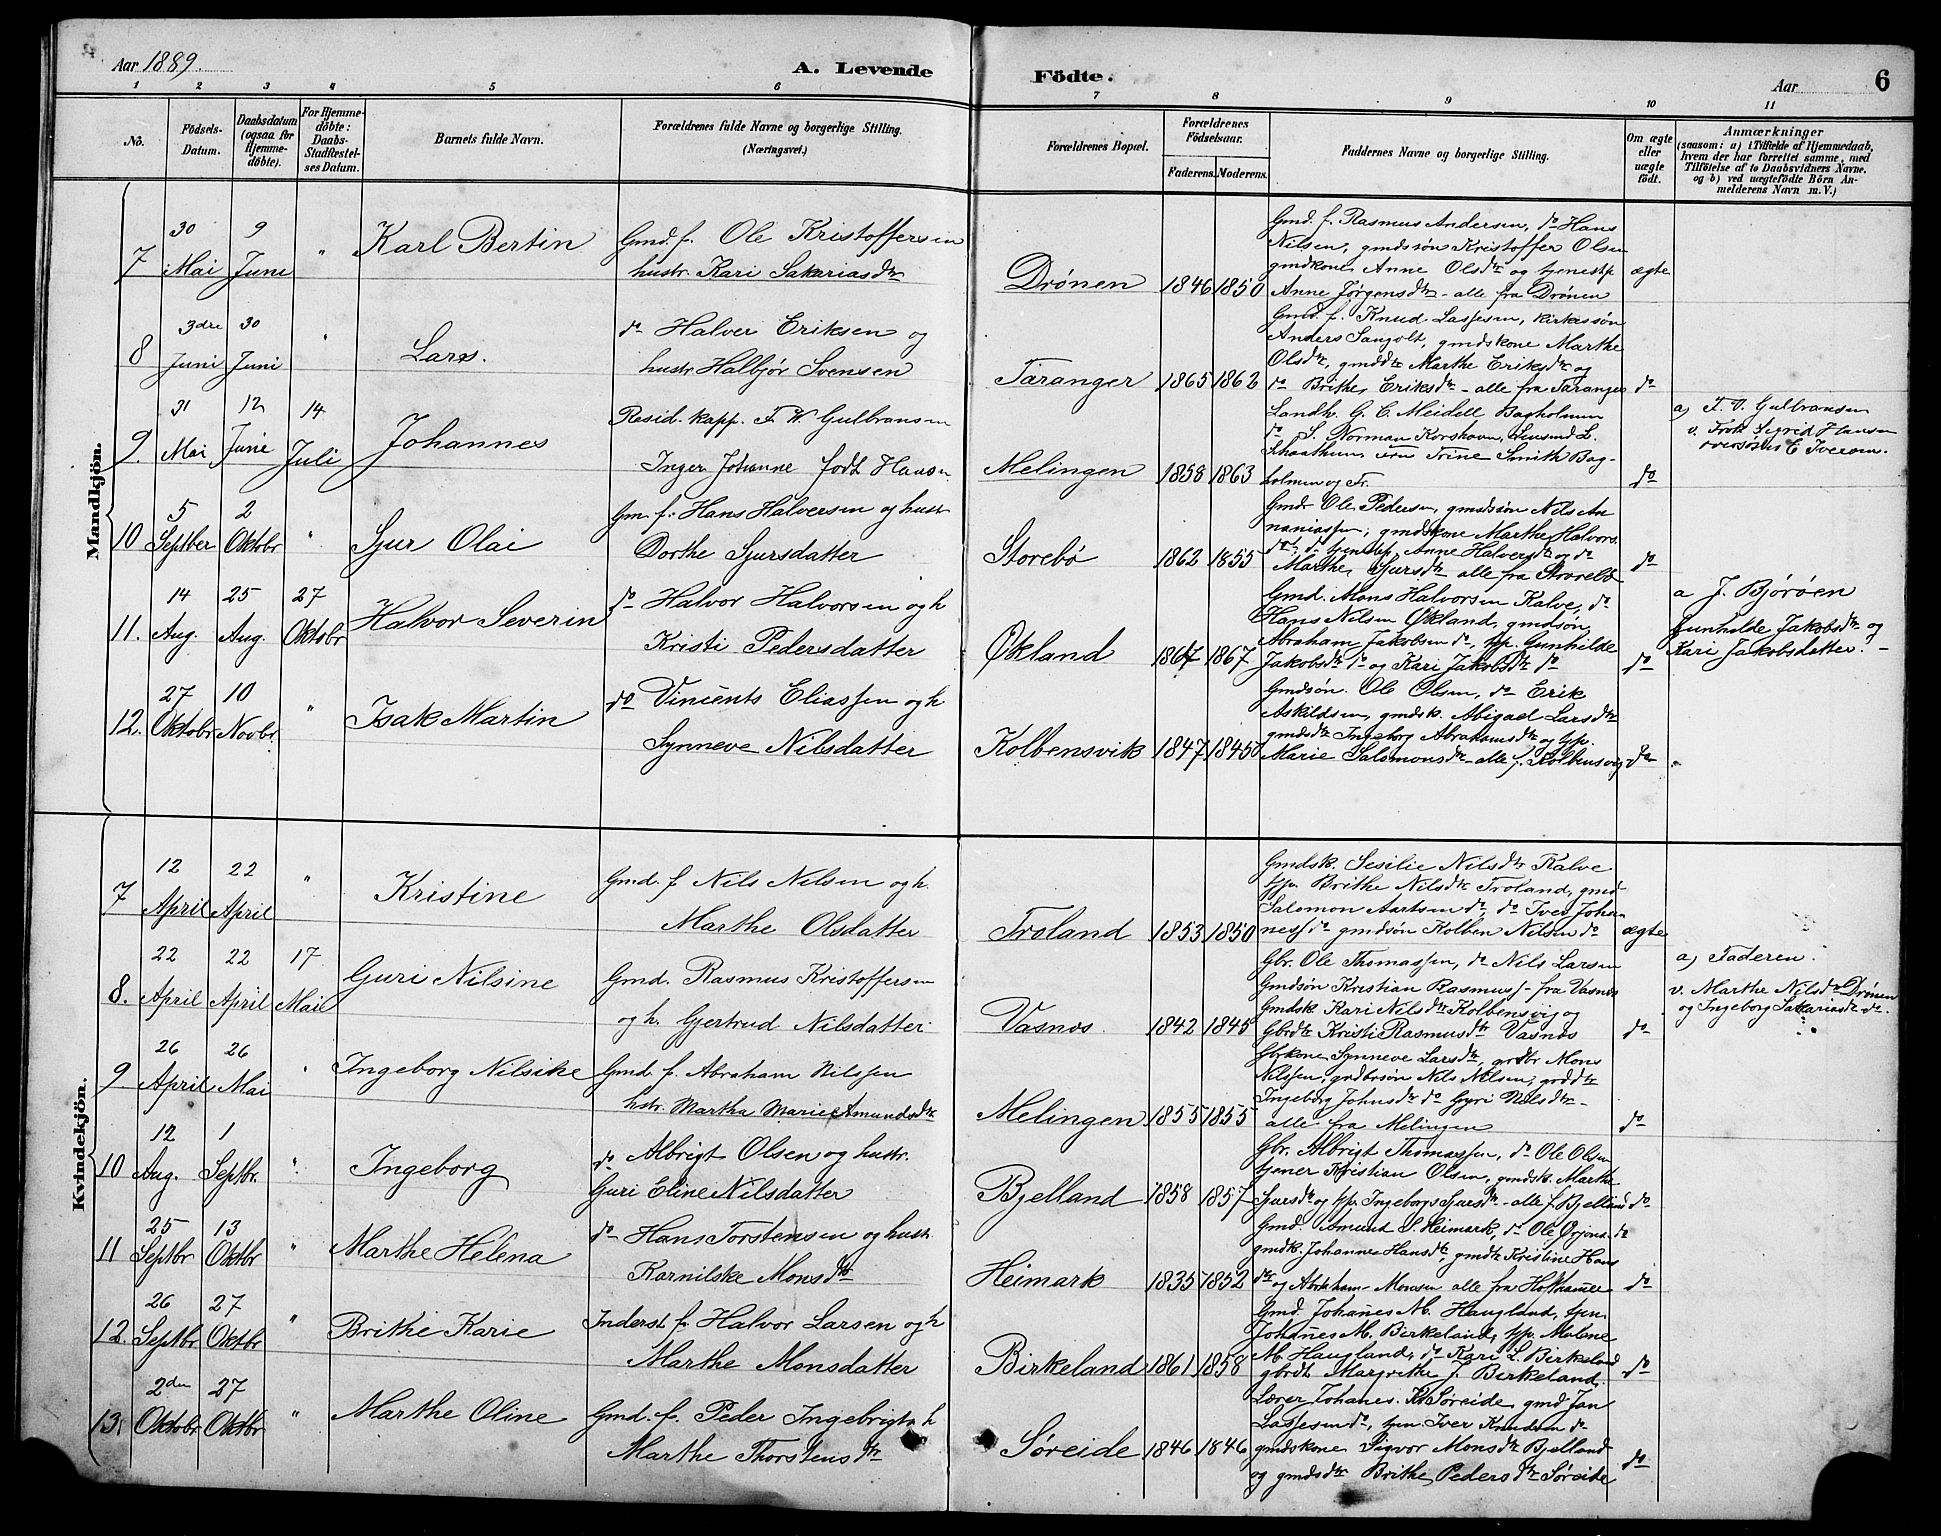 Aar 1889. A. Levende Födte. Aar 6
1 2 3 4 5 6 7 8 9 10 11
No. Födsels-Datum. Daabsdatum (ogsaa for Hjemmedöbte). For Hjemmedöbte: Daabs-Stadfæstelses Datum. Barnets fulde Navn. Forældrenes fulde Navne og borgerlige Stilling. (Næringsvei.) Forældrenes Bopæl. Forældrenes Födselsaar. Faderens. Moderens. Faddernes Navne og borgerlige Stilling. Om ægte eller uægte födt. Anmærkninger (saasom: a) i Tilfælde af Hjemmedaab, hvem der har forrettet samme, med Tilföielse af to Daabsvidners Navne, og b) ved uægtefödte Börn Anmelderens Navn m. V.)
Mandkjön.
7 30 Mai 9 Juni " Karl Bertin
Gmd. f. Ole Kristoffersen
hustr. Kari Sakariasdtr
Drönen 1846 1850
Gmd. f. Rasmus Andersen, do Hans
Nilsen, gmdssön Kristoffer Olsen
gmdkone Anne Olsdtr og tjenestp
Anne Jørgensdtr - alle fra Drönen
ægte
8 3dre Juni 30 Juni " Lars.
do Halver Eriksen og
hustr Halbjör Svensen
Taranger 1865 1862
Gmd. f. Knud Lassesen, kirkessön
Anders Sangolt, gmdskone Marthe
Olsdtr, gmddtr Marthe Eriksdtr og
do Brithe Eriksdtr - alle fra Taranger
do
9. 31 Mai 12 Junie 14 Juli Johannes
Resid. kapp. F. W. Gulbransen
Inger Johanne født Hansen
Melingen 1858 1863
Landh. G. C. Meidell Bagholmen
do S. Norman Korshavn, Lensmd L.
Trine Smith Bag-
holmen og Fr.
do
a) F. V. Gulbransen
v. Frök Sigrid Hansen
E Iversen.
10 5 Septber 2 Oktobr " Sjur Olai
Gm. f. Hans Halversen og hustr
Dorthe Sjursdatter
Storebö 1862 1855
Gmdr Ole Pedersen, gmdssön Nils An-
naniassen, gmdskone Marthe Halvors
dat, do tjenstp Anne Halversdtr og do
Marthe Sjursdtr alle fra Storebö
do
11. 14 Aug. 25 Aug. 27 Oktobr Halvor Severin
do Halvor Halvorsen og h
Kristi Pedersdatter
Økland 1867 1867
Gmd. Mons Halvorsen Kalve, do
Hans Nilsen Økland, gmdsön
Abraham Jakobsen do, tjp. Gunhilde
Jakobsdtr do og Kari Jakobsdtr do
do
a J. Bjøröen
Gunhilde Jakobsdtr og
Kari Jakobsdatter. -
12. 27 Oktobr 10 Novbr " Isak Martin
do Vincents Eliassen og h
Synneve Nilsdatter
Kolbensvik 1847 1845
Gmdsön. Ole Olsen, do Erik
Askildsen, gmdsk. Abigael Larsdtr
gmdsdtr Ingeborg Abrahamsdtr og tjp.
Marie Salomonsdtr - alle f. Kolbensvig
do
Kvindekjön.
7 12 April 22 April " Kristine
Gmd. f Nils Nilsen og h.
Marthe Olsdatter
Troland 1853 1850
Gmdsk. Sesilie Nilsdtr Kalve
tjp. Brithe Nilsdtr Troland, gmd
Salomon Aartsen do, do Iver Johan
ness do gmdsön Kolben Nilsen do
ægte
8. 22 April 22 April 17 Mai Guri Nilsine
Gmd. Rasmus Kristoffersen
og h. Gjertrud Nilsdatter
Vasnæs. 1842 1845
Gbr. Ole Thomassen, do Nils Larsen
Gmdsön Kristian Rasmuss - fra Vasnæs
Gmdsk Kari Nilsdtr Kolbensvig og
Gbrdtr Kristi Rasmusdtr Vasnæs
do
a) Faderen.
v. Marthe Nilsdtr Drönen
og Ingeborg Sakariasdtr do.
9 26 April 26 Mai " Ingeborg Nilsike
Gmd. f. Abraham Nilssen
hstr. Martha Marie Amundsdtr
Melingen 1855 1855
Gbrkone Synneve Larsdtr, grdbr Mons
Nilssen, grdbrsön Nils Nilsen, grddtr
Ingeborg Johnsdtr do Gyri Nilsdtr -
alle fra Melingen
do
10 12 Aug. 1 Septbr. " Ingeborg
do Albrigt Olsen og hustr.
Guri Eline Nilsdatter
Bjelland 1858 1857
Gbr. Albrigt Thomassen, do Ole Olsen
tjener Kristian Olsen, gmdsk. Marthe
Sjursdtr og tjp. Ingeborg Sjursdtr - alle f. Bjelland
do
11 25 Septbr 13 Oktbr " Marthe Helena
do Hans Torstensen og hustr.
Karnilske Monsdtr
Heimark 1835 1852
Gmd. Amund S. Heimark, do Ole Ørjans. do
gmdk. Johannes Hansdtr, gmdtr Kristine Hans
dtr og Abraham Monsen alle fra
do
12. 26 Septbr 27 Oktbr " Brithe Karie
Inderst f. Halvor Larsen og h
Marthe Monsdatter
Birkeland 1861 1858
Gmd. Johanes M. Haugland, tjen
Johanes M. Birkeland, tjp. Malene
M. Haugland, do Kari L. Birkeland
gbrdt Margrethe J. Birkeland.
do
13. 2den Oktobr 27 Oktbr " Marthe Oline
Gmd. f. Peder Ingebrigts h
Marthe Thorstensdtr
Søreide 1846 1846
Lærer Johanes. K Søreide, gmd Jan
Lassesen do, tjen Iver Knudsen do
gmdskone Sigvor Monsdtr Bjelland
og gmdsdtr Brithe Pedersdtr Søreide
do